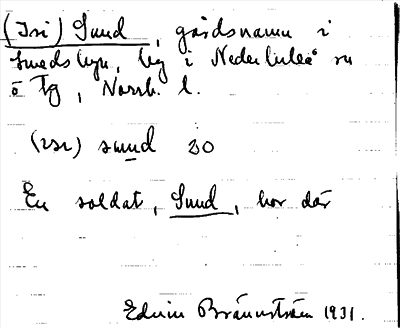 (Isi) Sund, gårdsnamn i
Smedsbyn, by i Nederluleå sn
ö Tg, Norrb. l.
(ɪsɪ) sund 20
En soldat, Sund, bor där
Edvin Brännström 1931.